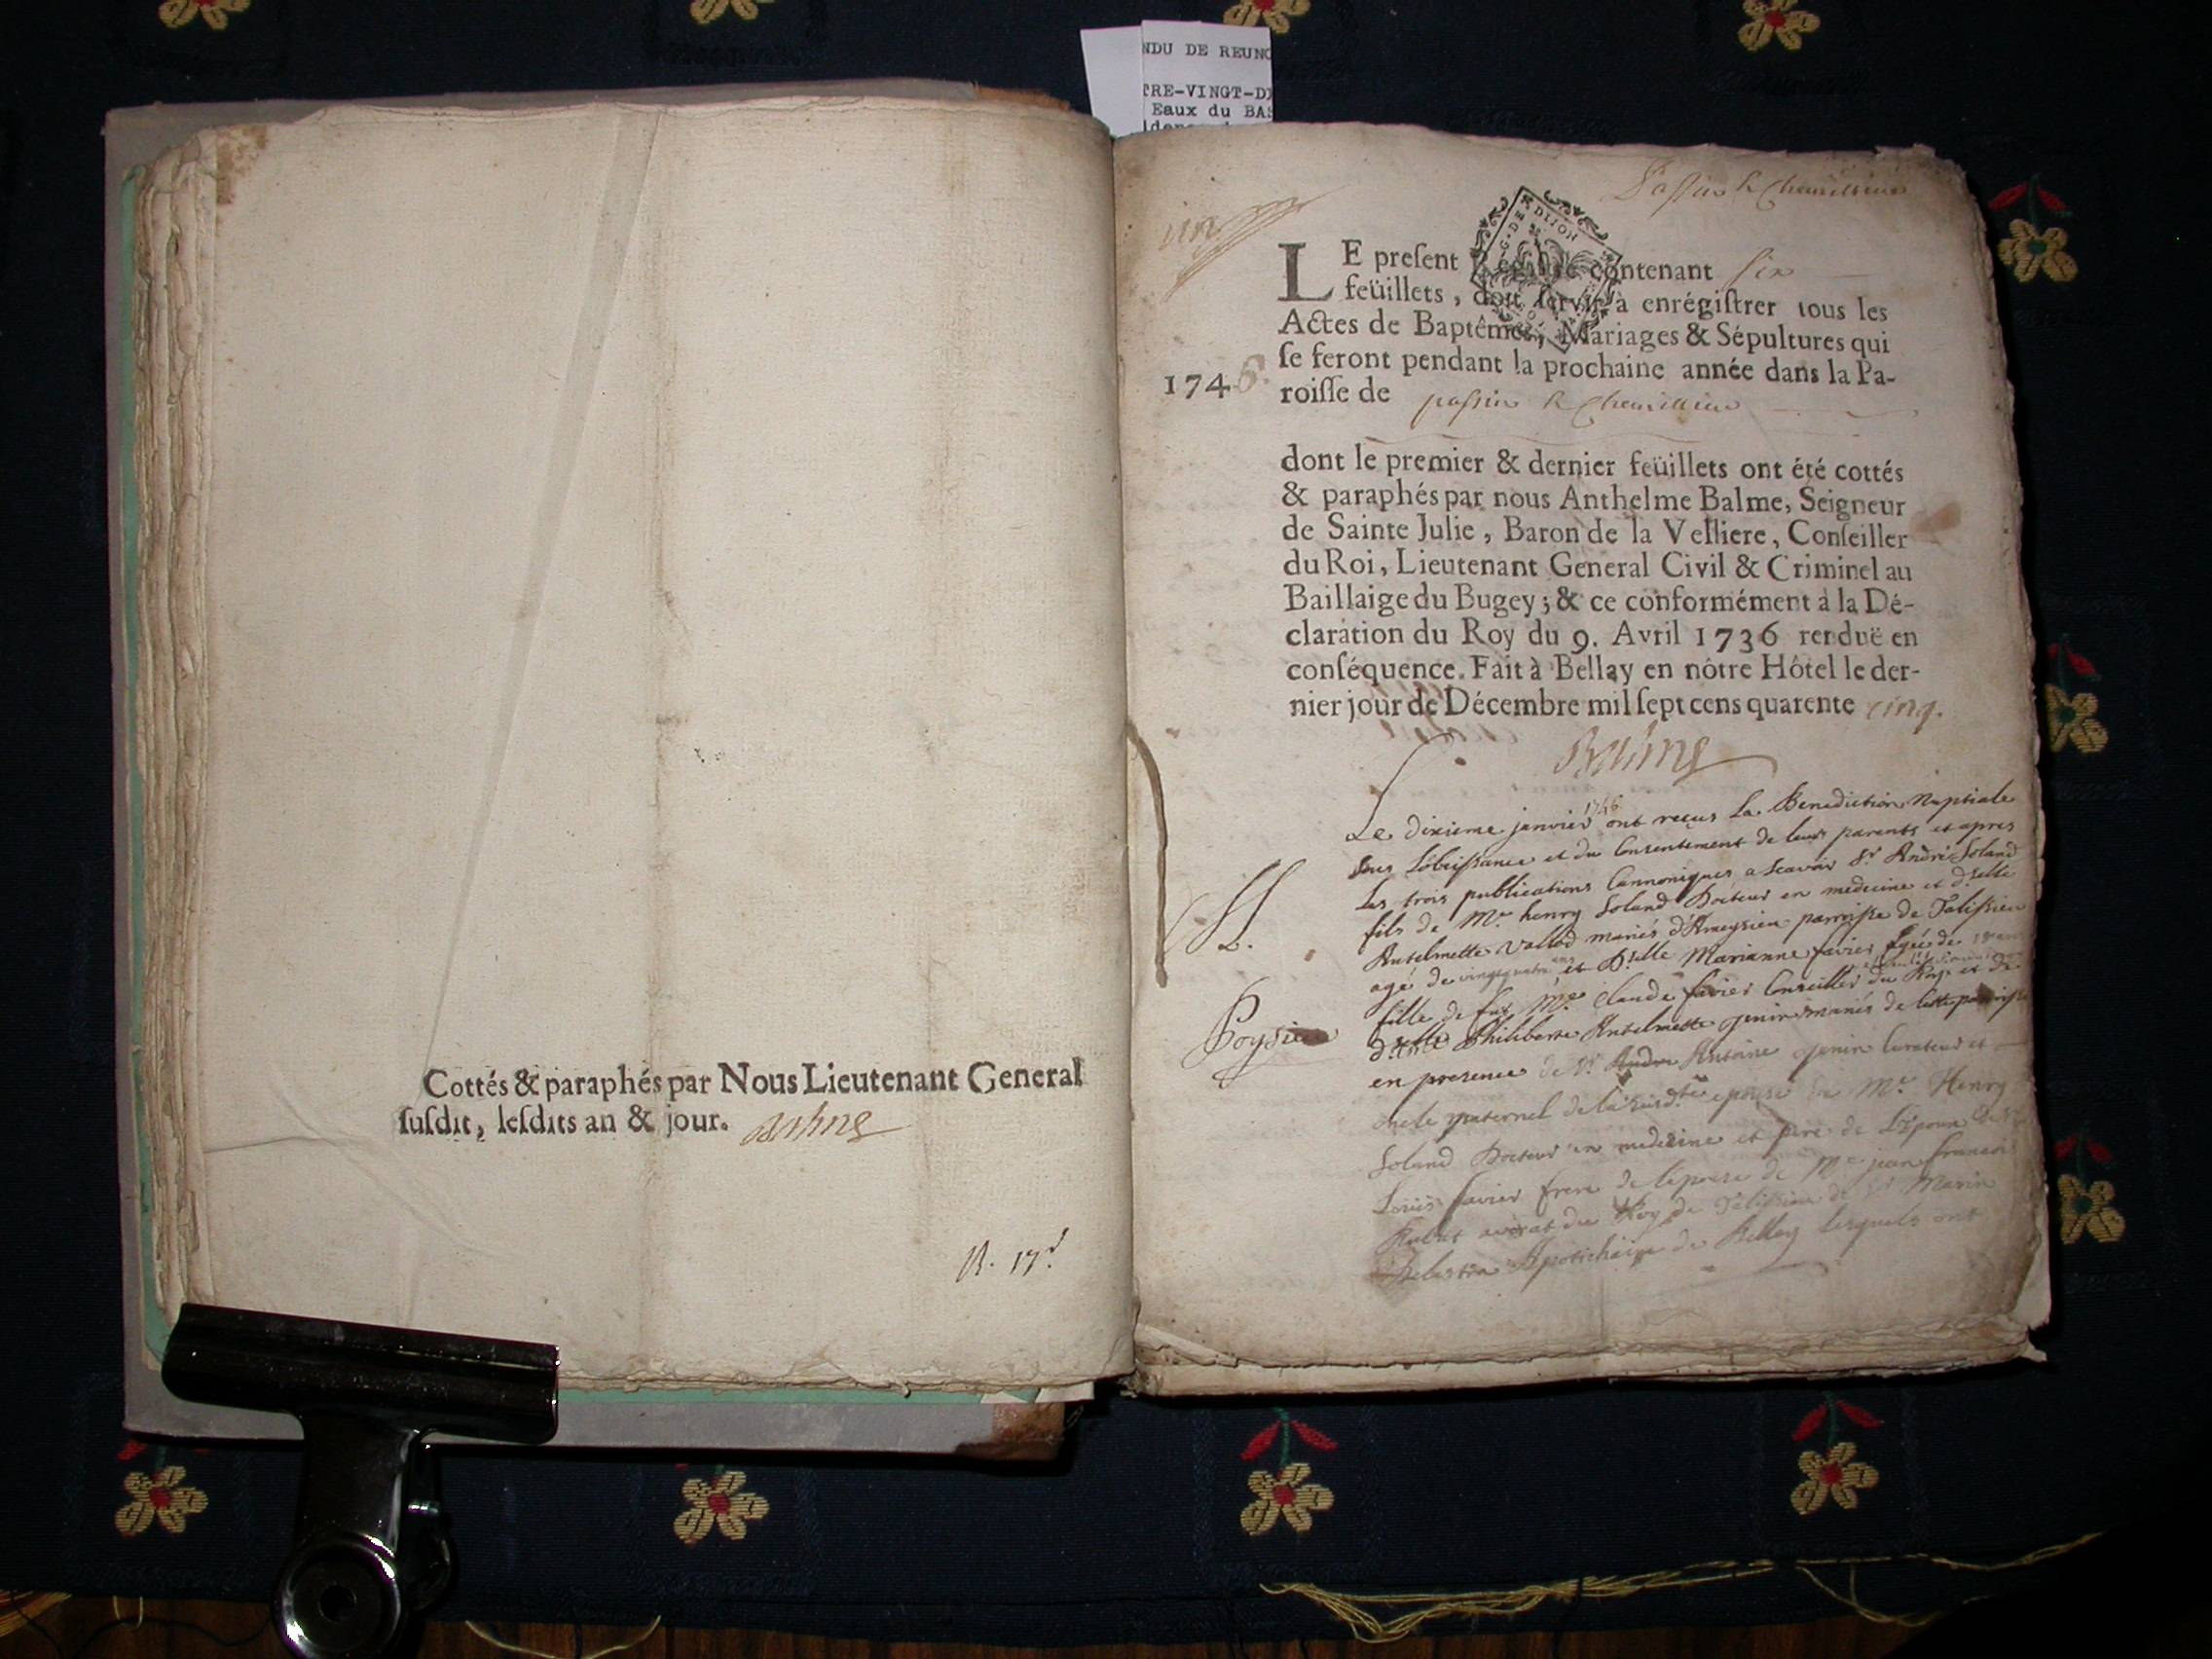 NDU DE REUNO
TRE-VINGT-DI
Eaux du BAS
Cottés & paraphés par Nous Lieutenant General
ſuſdit, leſdits an & jour. Balme
R. 17.d
G. DE DIJON
LE preſent Regiſtre contenant ſix
feüillets, doit ſervir à enrégiſtrer tous les
Actes de Baptêmes, Mariages & Sépultures qui
ſe feront pendant la prochaine année dans la Pa-
1746.
roiſſe de paſſin & Chemillieu
dont le premier & dernier feüillets ont été cottés
& paraphés par nous Anthelme Balme, Seigneur
de Sainte Julie, Baron de la Velliere, Conſeiller
du Roi, Lieutenant General Civil & Criminel au
Baillaige du Bugey; & ce conformément à la Dé-
claration du Roy du 9. Avril 1736 renduë en
conſéquence. Fait à Bellay en nôtre Hôtel le der-
nier jour de Décembre mil ſept cens quarente cinq.
Balme
Le dixieme janvier 1746 ont reçus La Benediction Nuptiale
sous Lobeissance et du Consentement de leurs parents et apres
Les trois publications Cannoniques a scavoir Sr André Soland
M.
fils de Mr henry Soland Docteur en medecine et d.elle
Antelmette Vallod mariés d'Ameysieu parroisse de Talissieu
agé de vingtquatre ans et D.elle Marianne favier agée de 18 ans
Poysieu
fille de fut Me Claude favier Conseiller du Roy et de
d.elle Philiberte Antelmette genin mariés de cette parroisse
en presence de Sr Antoine genin Curateur et
oncle maternel de la susd.te epouse de Mr Henry
Soland Docteur en medecine et pere de L'Epoux de
Loüis favier frere de lepouse de Me jean francois
Rubat avocat du Roy de Talissieu de Sr Marin
Apotichaire de Belley lesquels ont